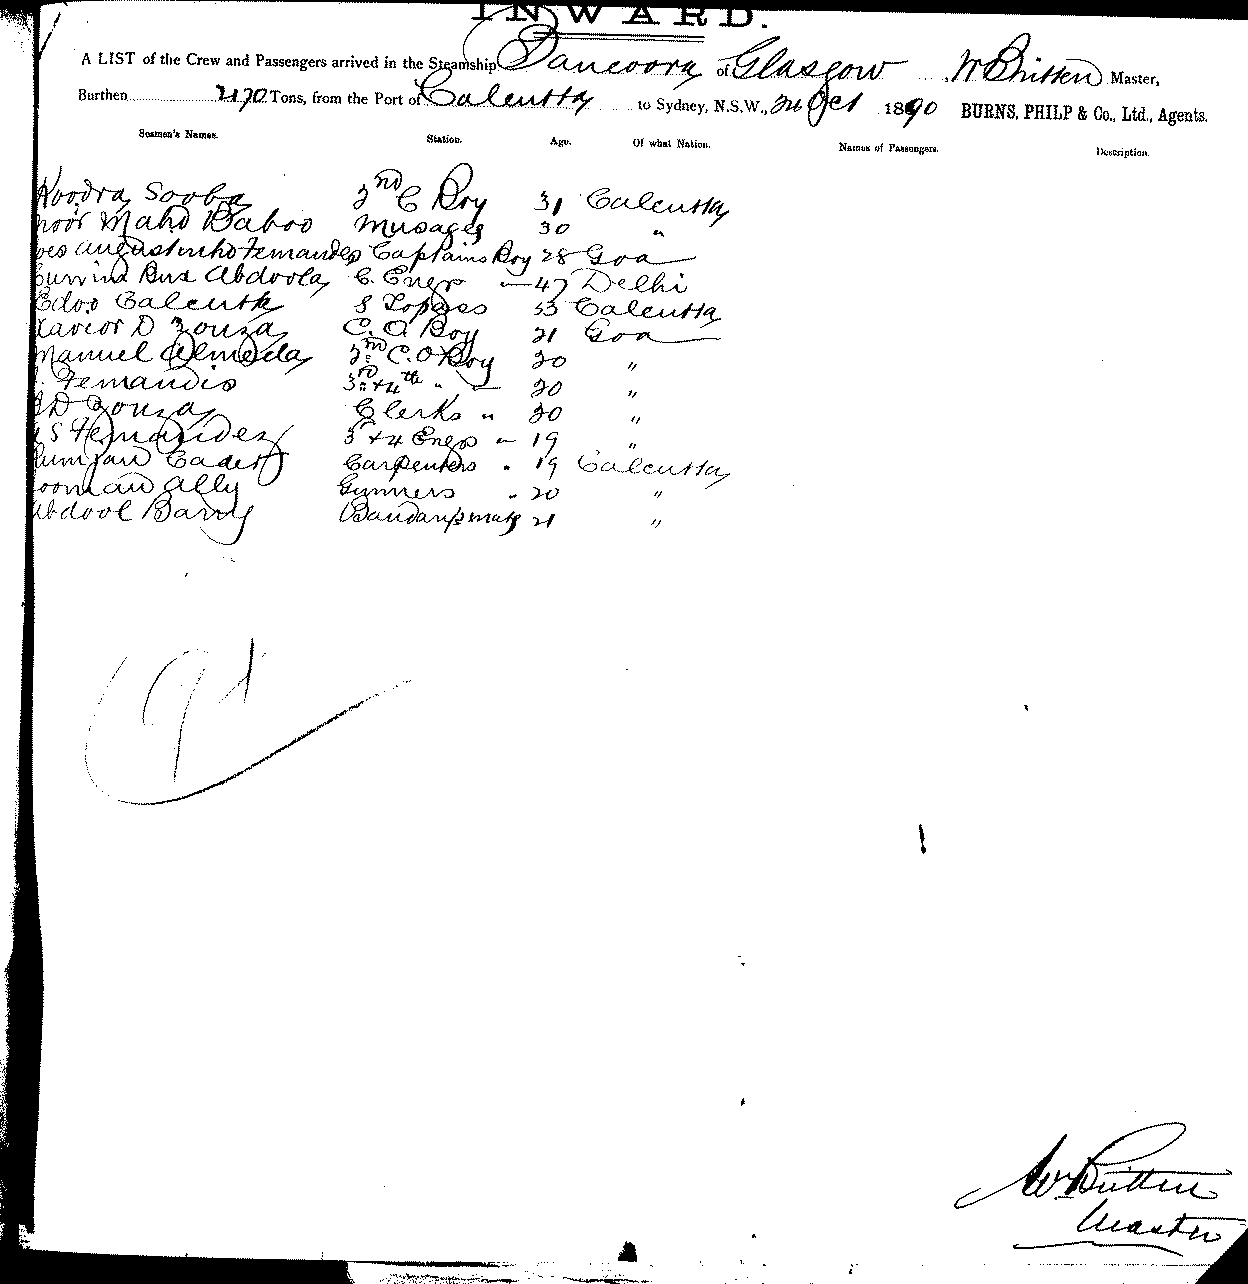 INWARD.
A LIST of the Crew and Passengers arrived in the Steamship Bancoora of Glasgow W Britten Master,
Burthen 2170 Tons, from the Port of Calcutta to Sydney, N.S.W., Oct 1890 BURNS, PHILP & Co., Ltd., Agents.
Seamen's Names. Station. Age. Of what Nation. Names of Passengers. Description.
Koodra Sooba 2nd C Boy 31 Calcutta
noor Mahd Baboo 30 "
Augustinho Fernandes Captains Boy 28 Goa
Bux Abdoola C. Engr 47 Delhi
Calcutta S Topass 33 Calcutta
Xavier D Zouza C. O Boy 21 Goa
Manuel Almeda 2nd C. O Boy 20 "
Fernandis 3rd + 4th " 20 "
D Zouza Clerks " 20 "
S Fernandez 3 + 4 Engr " 19 "
Cader Carpenters " 19 Calcutta
ally Gunners " 20 "
Abdool Barry 21 "
W Britten
Master